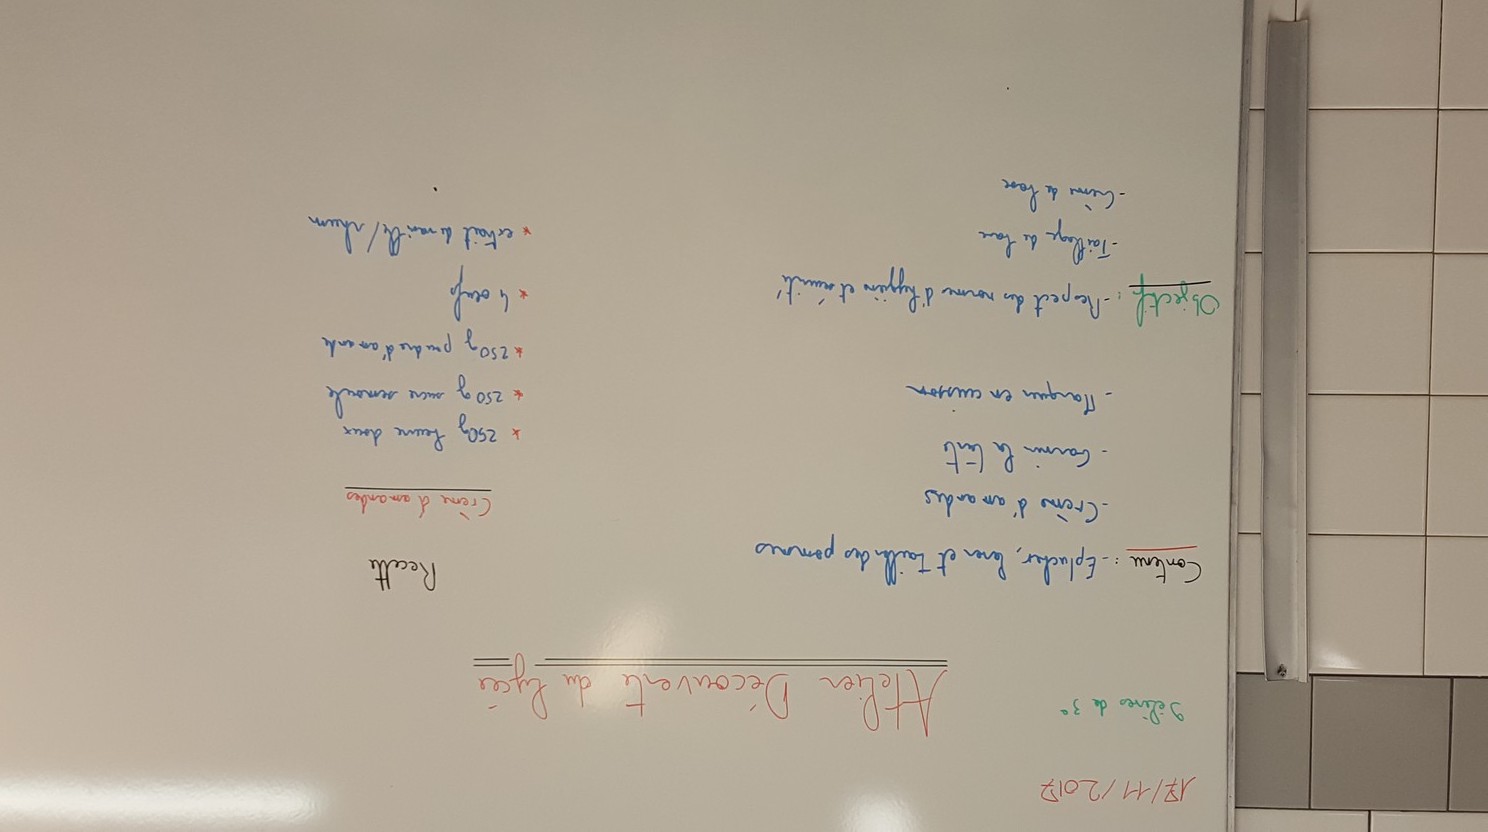 17/11/2017
9 élèves de 3°
Atelier Découverte du lycée
Contenu : - Eplucher, laver et tailler des pommes
- Crème d'amandes
- Garnir la tarte
- Marquer en cuisson
Objectif : - Respect des norme d'hygiène et sécurité
- Taillage de base
- Crème de base
Recette
Crème d'amandes
* 250g beurre doux
* 250 g sucre semoule
* 250 g poudre d'amande
* 4 oeufs
* extrait de vanille / rhum